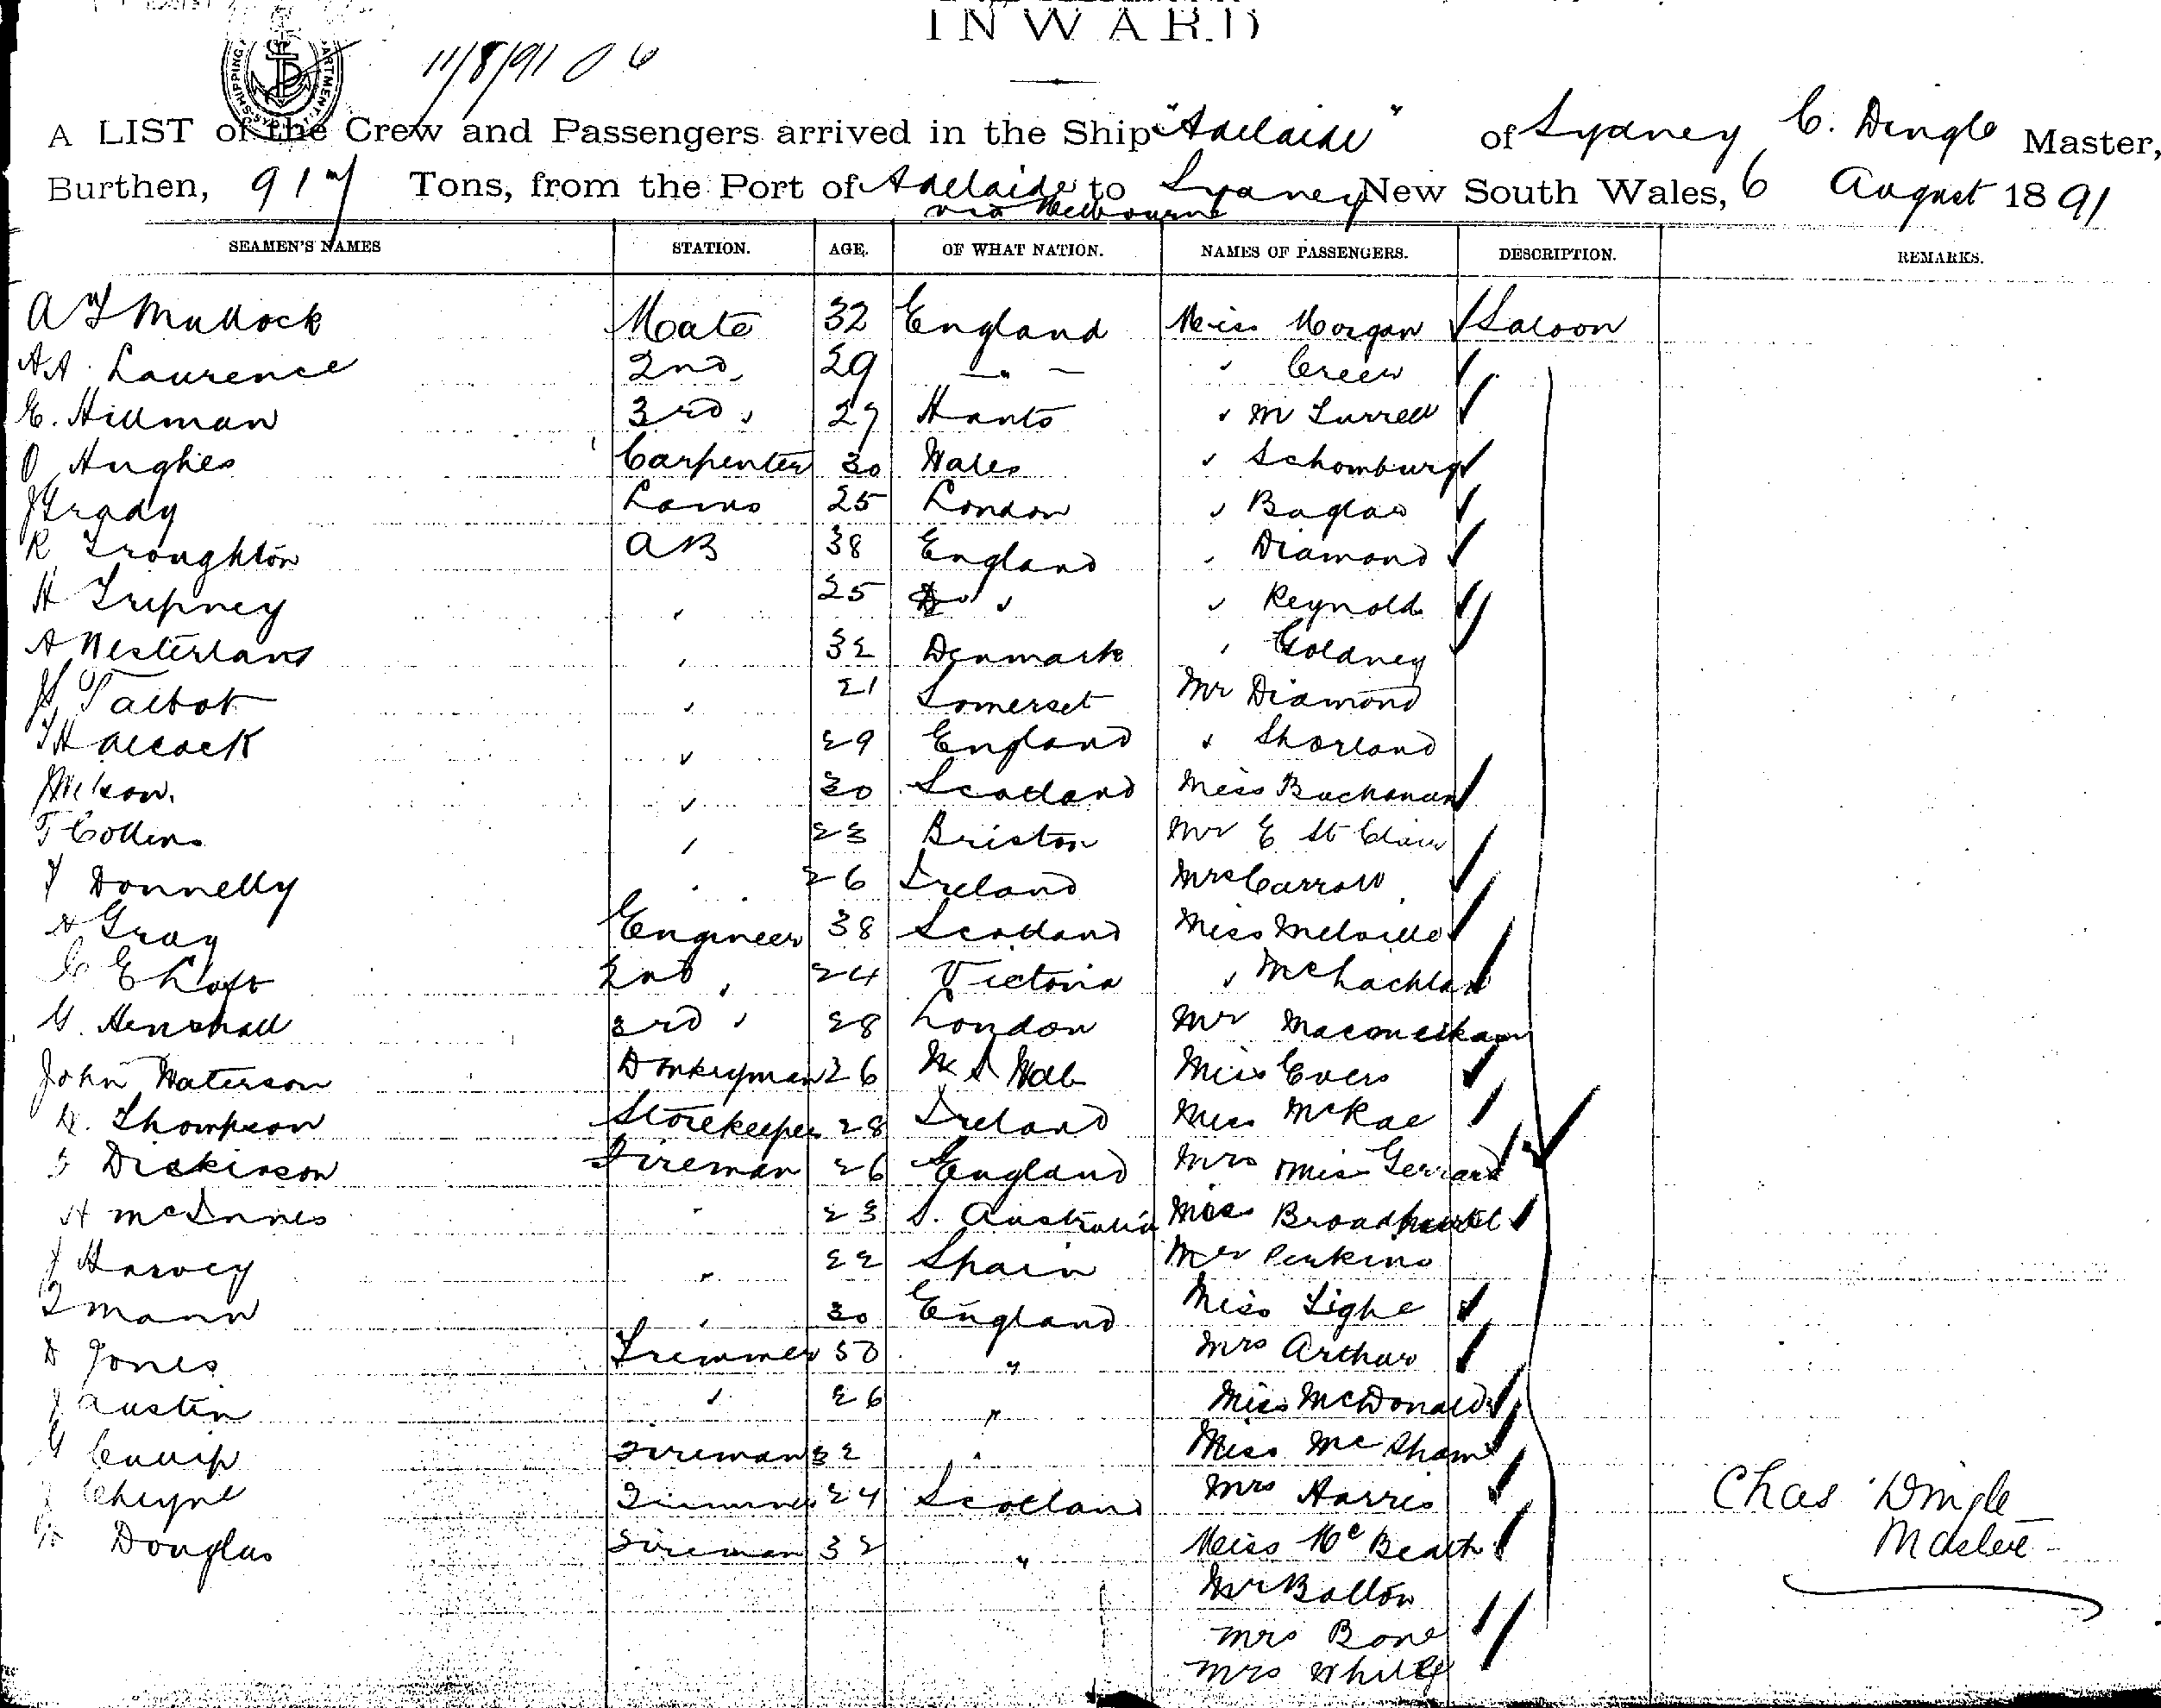 INWARD
11/8/91
SHIPPING DEPARTMENT SYDNEY
A LIST of the Crew and Passengers arrived in the Ship "Adelaide" of Sydney C. Dingle Master,
Burthen, 917 Tons, from the Port of Adelaide to Sydney New South Wales, 6 August 1891
via Melbourne
SEAMEN'S NAMES STATION. AGE. OF WHAT NATION. NAMES OF PASSENGERS. DESCRIPTION. REMARKS.
A T Mullock Mate 32 England Miss Morgan Saloon
A A. Laurence 2nd 29 " " Creew
E. Hillman 3rd " 27 Hants " M Turrell
O Hughes Carpenter 30 Wales " Schomburg
J Grady Lamps 25 London " Baglas
R Troughton AB 38 England " Diamond
H Tripney " 25 Do " " Reynolds
A Westerland " 32 Denmark " Goldney
H Talbot " 21 Somerset Mr Diamond
T H Alcock " 29 England " Shorland
J Nelson. " 30 Scotland Miss Buchanan
T Collins " 23 Briston Mr E St Clair
J Donnelly " 26 Ireland Mrs Carroll
A Gray Engineer 38 Scotland Miss Melville
C E Loft 2nd " 24 Victoria " McLachlan
G. Henshall 3rd " 28 London Mr
John Waterson Donkeyman 26 N S Wales Miss Evers
D. Thompson Storekeeper 28 Ireland Miss McRae
F Dickinson Fireman 26 England Mrs Miss Gerrard
A McInnes " 23 S. Australia Miss
J Harvey " 22 Spain Mr Perkins
T Mann " 30 England Miss Lighe
D Jones Trimmer 50 " Mrs Arthur
J Austin " 26 " Miss McDonald
G Fireman 32 " Miss
J Cheyne Trimmer 24 Scotland Mrs Harris
Douglas Fireman 32 " Miss McBeath
Mr Bolton
Mrs Bone
Mrs White
Chas Dingle
Master